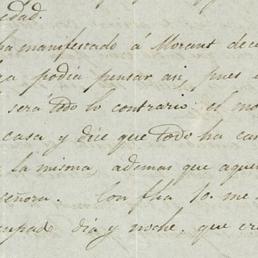 edad.
ha manifestado á Morant dec
podia pensar asi, pues e
será todo lo contrario: el mo
casa, y dice que todo ha ca
la misma, ademas que aque
señora. Con fha 10. me
cupad. dia y noche, que cr